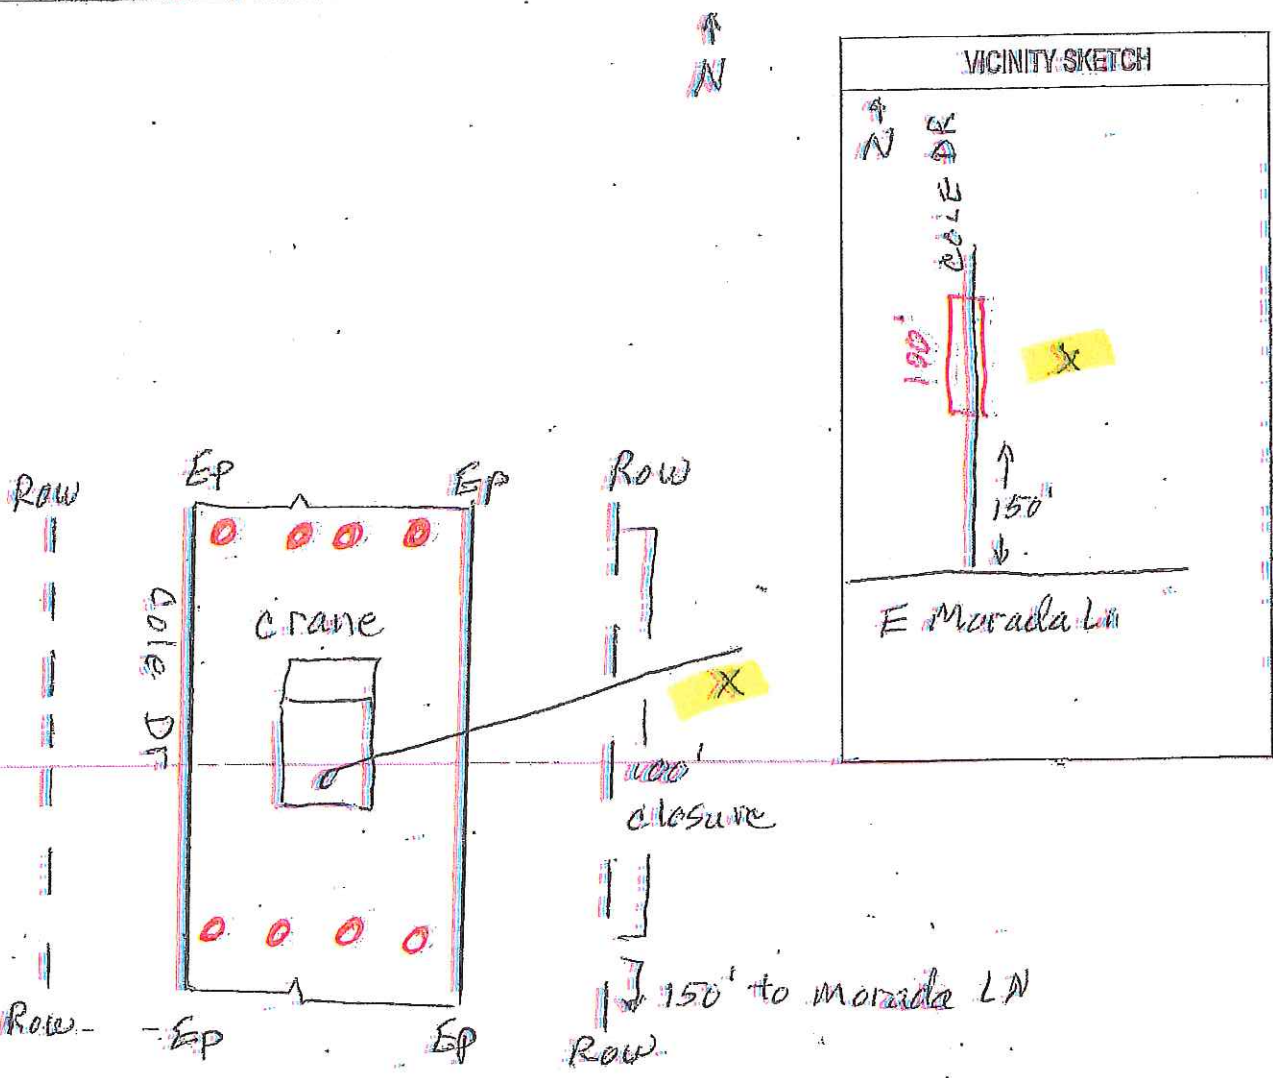 N
VICINITY SKETCH
N
COLE DR
100'
X
150'
E Morada Ln
Row
Ep
Ep
Row
Cole Dr
crane
X
100'
closure
150' to Morada LN
Row
Ep
Ep
Row